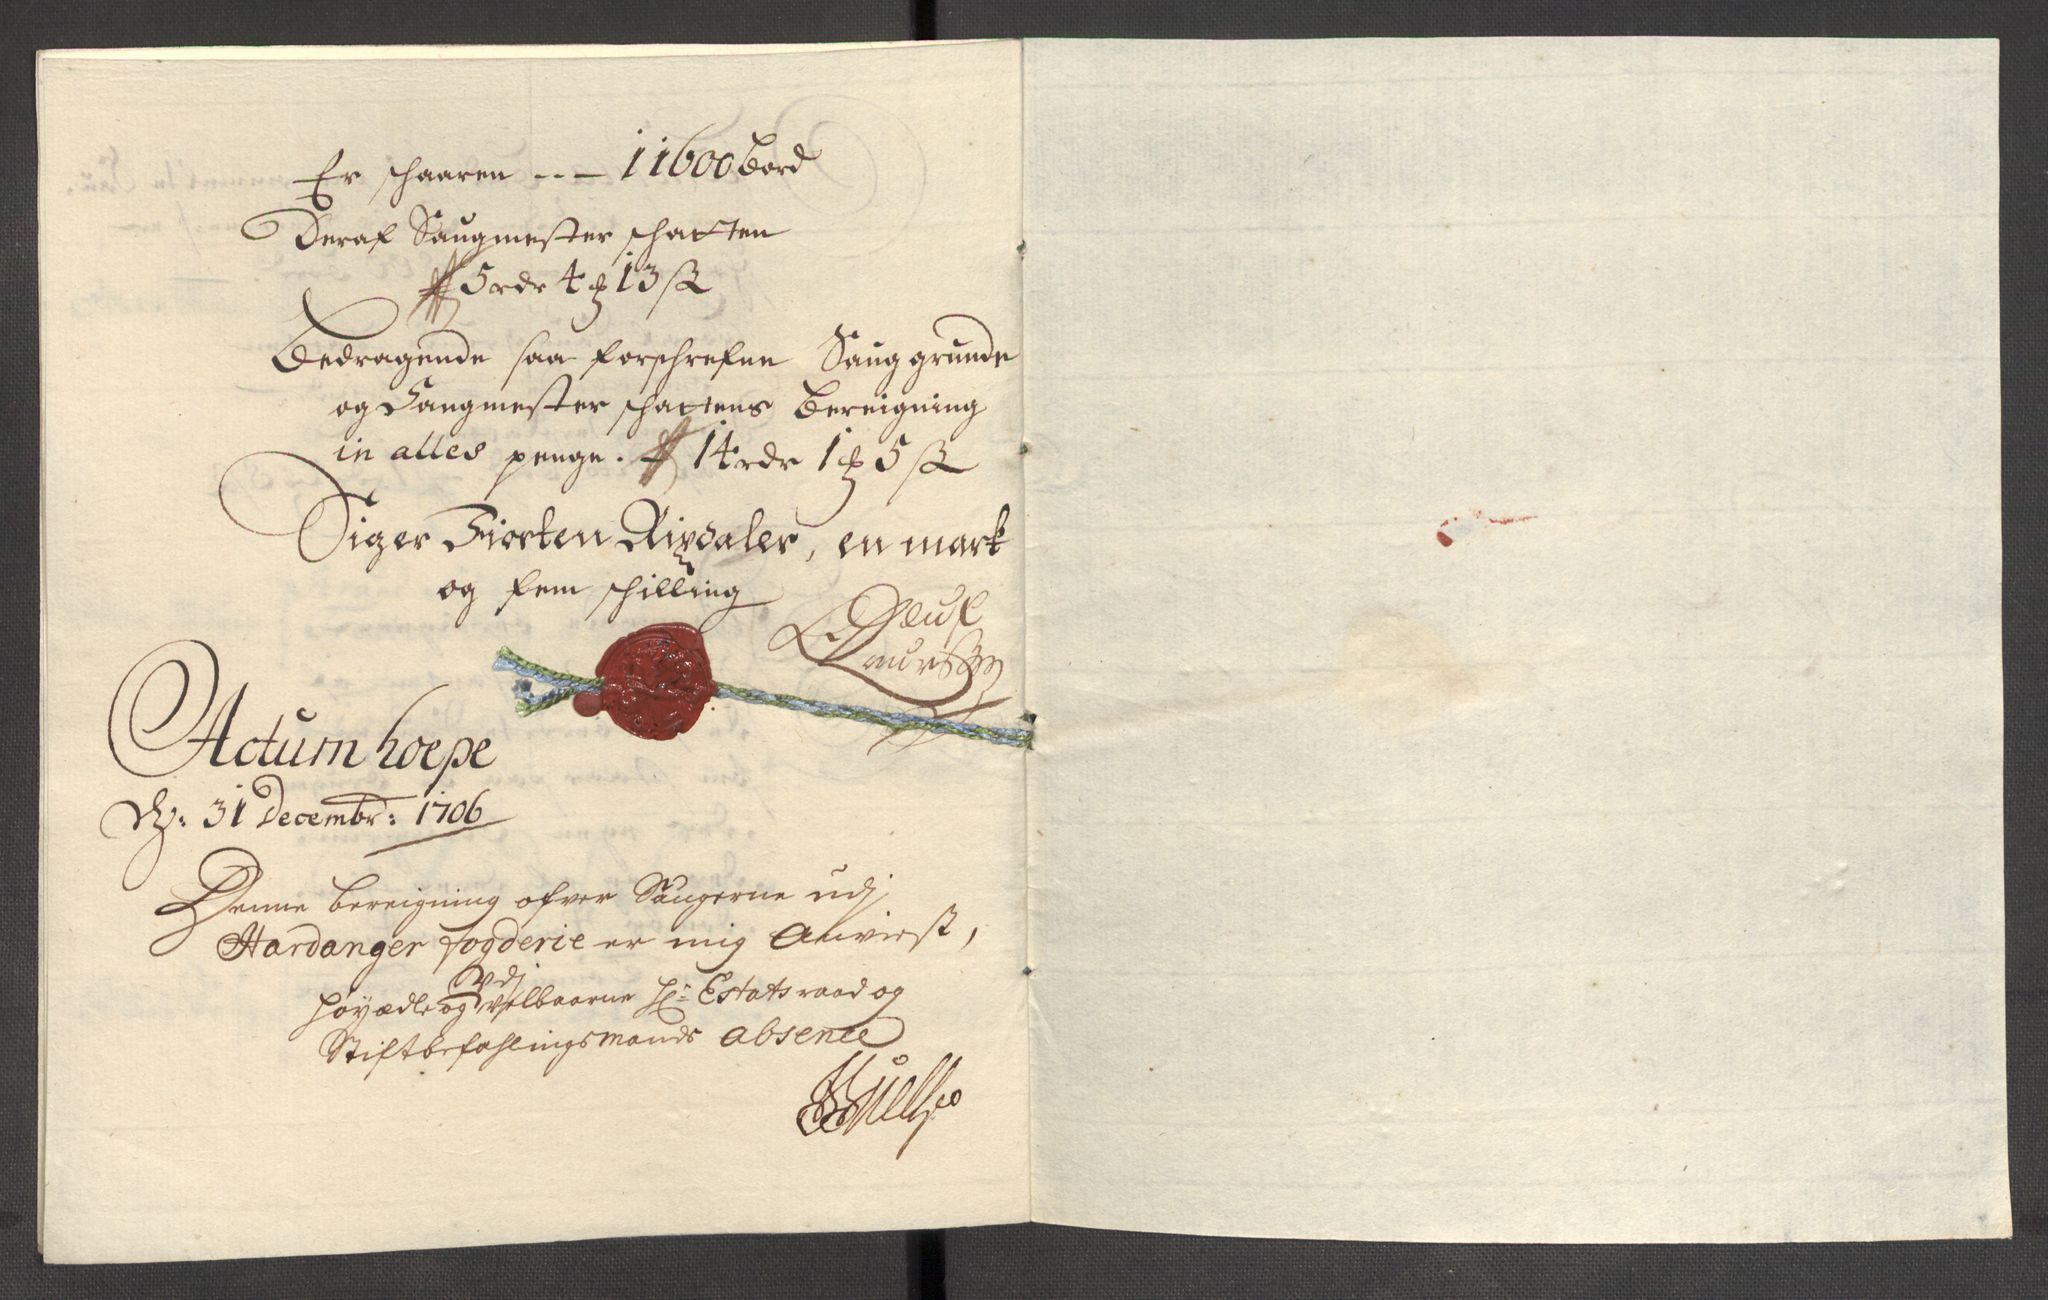 Er schaaren --- 11600 bord
Deraf Saugmester schatten
5 rdr 4 ꝥ 13 ß
Bedragende saa forschrefne Sauggrunde
og Saugmester schattens Bereigning
in alles penge. 14 rdr 1 ꝥ 5 ß
Siger Fiorten Rixdaler, en mark
og fem schilling
Oluf
Laurssøn
Actum hoepe
dend: 31 Decembr: 1706
Denne bereigning ofver Saugerne udj
Hardanger fogderie er mig Anviest,
udj
høyædle og velbaarne Hr: Estatsraad og
Stiftbefahlingsmands absence